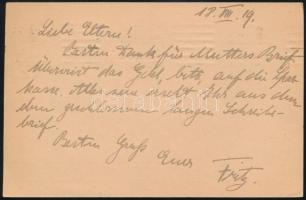 18. VIII. 19.
Liebe Eltern!
Besten Dank für Mutters Brief.
überweist das Geld, bitte, auf die Spar-
kasse. Alles seht Ihr aus dem
eben geschlossenen langen Schreibe-
brief.
Besten Gruß
Euer
Fritz.